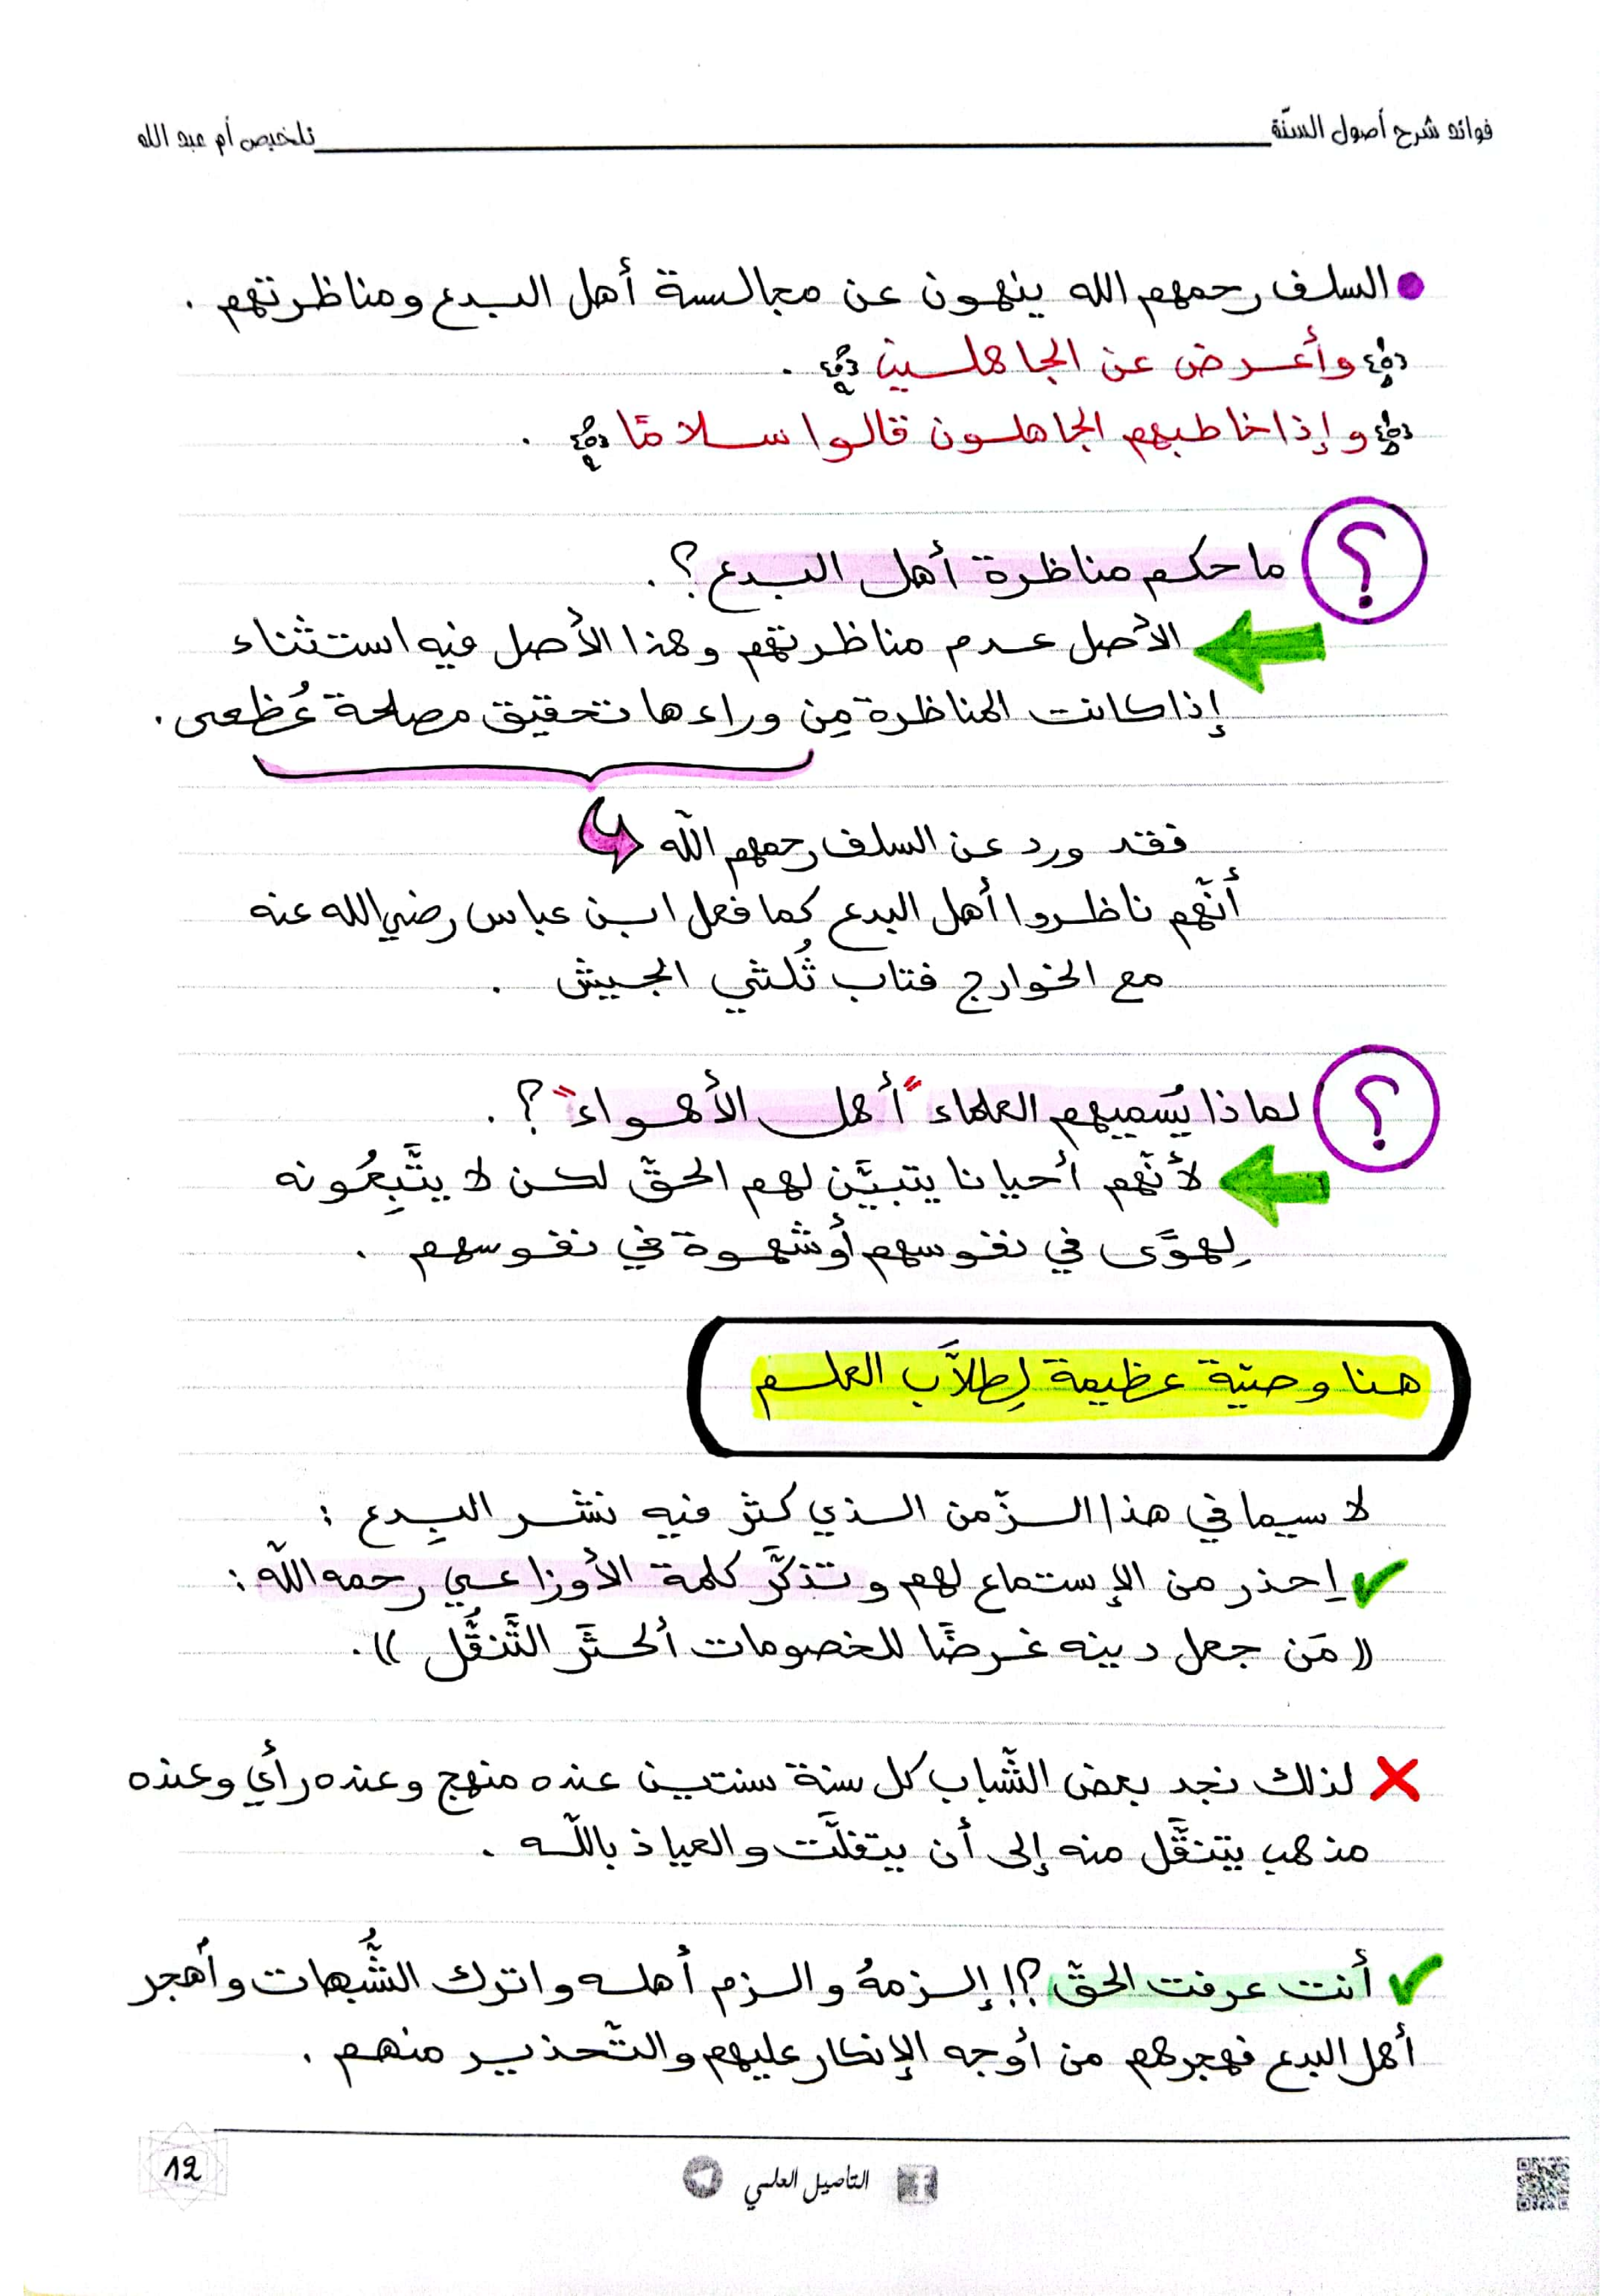 فوائد شرح أصول السنّة
تلخيص أم عبد الله
السلف رحمهم الله ينهون عن مجالسة أهل البدع ومناظرتهم .
﴿وأعرض عن الجاهلين﴾ .
﴿وإذا خاطبهم الجاهلون قالوا سلامًا﴾ .
؟
ما حكم مناظرة أهل البدع ؟ .
الأصل عدم مناظرتهم وهذا الأصل فيه استثناء
إذا كانت المناظرة مِن وراءها تحقيق مصلحة عُظمى .
فقد ورد عن السلف رحمهم اللّه
أنّهم ناظروا أهل البدع كما فعل ابن عباس رضي الله عنه
مع الخوارج فتاب ثُلثي الجيش .
؟
لماذا يُسمييهم العلماء "أهل الأهواء" ؟ .
لأنّهم أحيانا يتبيَّن لهم الحقّ لكن لا يتَّبِعُونه
لِهوًى في نفوسهم أو شهوة في نفوسهم .
هنا وصيّة عظيمة لِطلاَّب العلم
لا سيما في هذا الزّمن الذي كثر فيه نشر البِدع :
✓ اِحذر من الإستماع لهم وتذكَّر كلمة الأوزاعي رحمه اللّه :
(( مَن جعل دينه غرضًا للخصومات أكثَر التَّنقُّل )) .
✗ لذلك نجد بعض الشّباب كل سنة سنتين عنده منهج وعنده رأي وعنده
مذهب يتنقَّل منه إلى أن يتفلَّت والعياذ باللّه .
✓ أنت عرفت الحقّ ؟! إلزمهُ والزم أهله واترك الشُّبهات وأهجر
أهل البدع فهجرهم من أوجه الإنكار عليهم والتّحذير منهم .
التأصيل العلمي
12